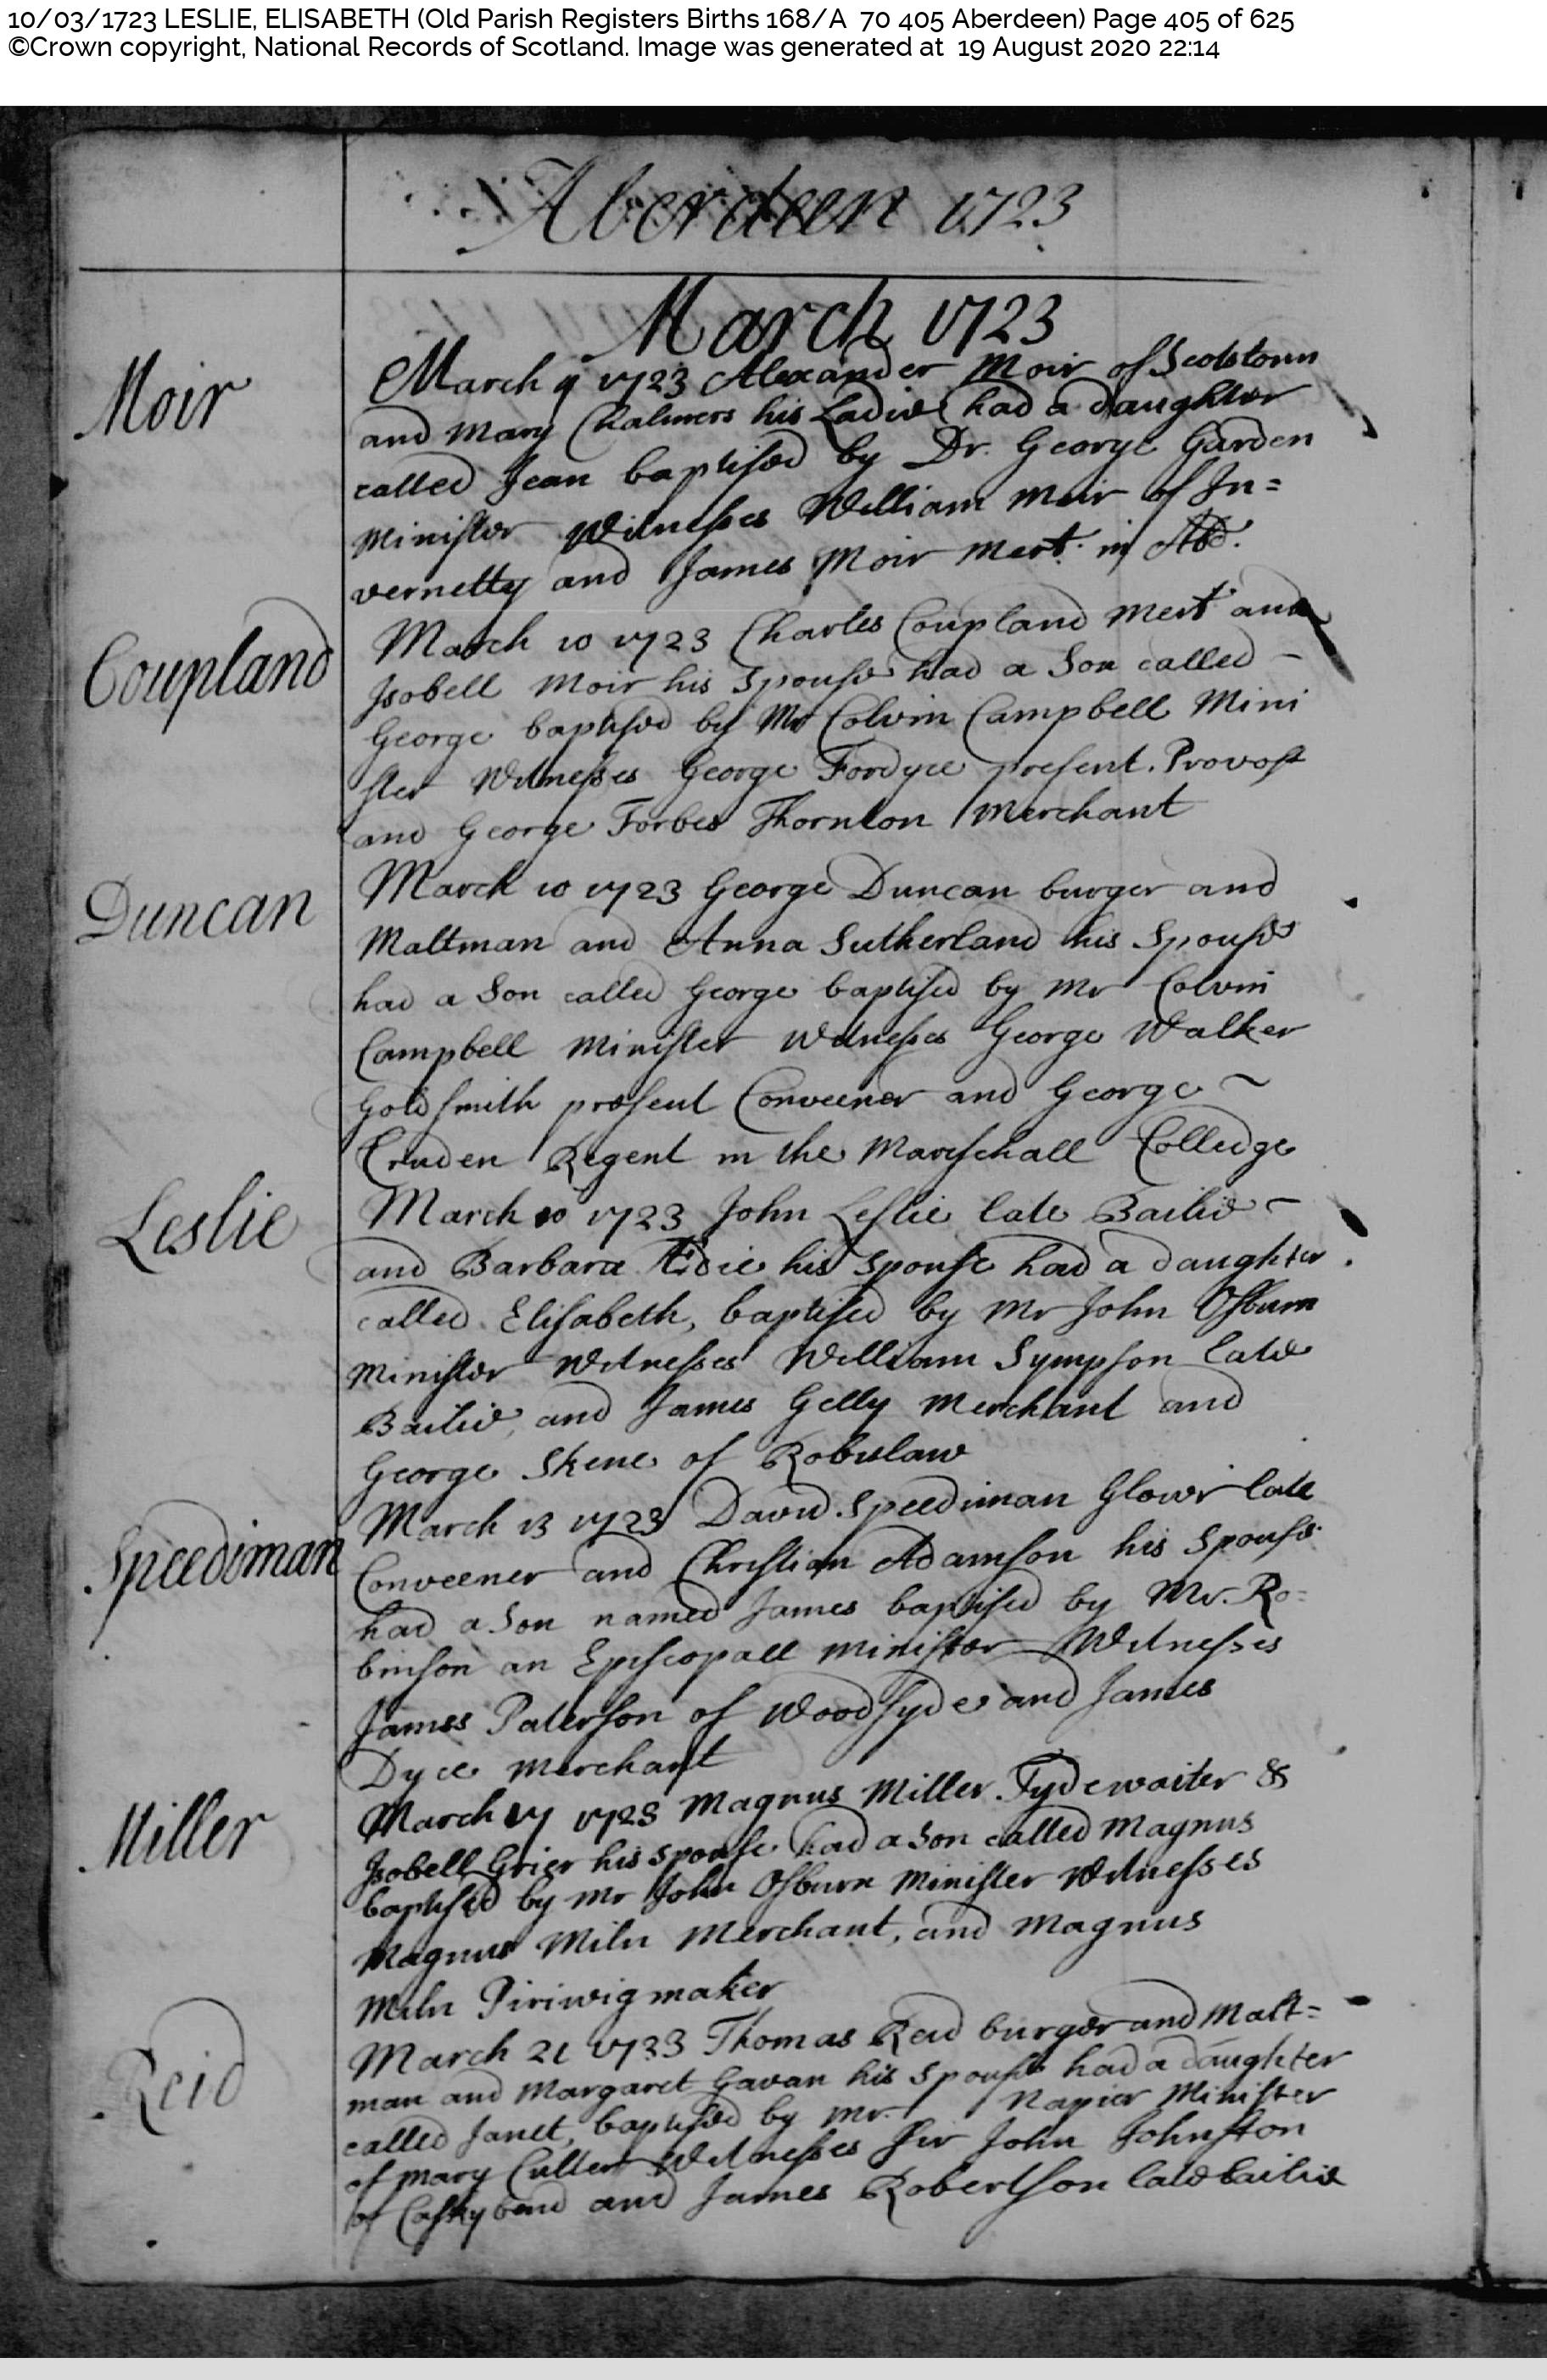 10/03/1723 LESLIE, ELISABETH (Old Parish Registers Births 168/A 70 405 Aberdeen) Page 405 of 625
©Crown copyright, National Records of Scotland. Image was generated at 19 August 2020 22:14
Aberdeen 1723
March 1723
Moir
March 9 1723 Alexander Moir of Scotstoun
and Mary Chalmers his Ladie had a daughter
called Jean baptised by Dr. George Garden
Minister Witnesses William Moir of In=
vernetty and James Moir Mert. in Abd.
Coupland
March 10 1723 Charles Coupland Mert and
Isobell Moir his Spouse had a Son called –
George baptised by Mr Colvin Campbell Mini
ster Witnesses George Fordyce present Provost
and George Forbes Thornton Merchant
Duncan
March 10 1723 George Duncan burger and
Maltman and Anna Sutherland his Spouse
had a Son called George baptised by Mr Colvin
Campbell Minister Witnesses George Walker
Goldsmith present Conveener and George ~
Cruden Regent in the Marischall Colledge
Leslie
March 10 1723 John Leslie late Bailie –
and Barbara Edie his spouse had a daughter
called Elisabeth, baptised by Mr John Osburn
Minister Witnesses William Sympson late
Bailie, and James Gelly Merchant and
George Skene of Robslaw
Speediman
March 13 1723 David Speediman Glover late
Conveener and Christian Adamson his Spouse
had a Son named James baptised by Mr. Ro=
binson an Episcopall Minister Witnesses
James Paterson of Woodsyde and James
Dyce Merchant
Miller
March 17 1723 Magnus Miller Tydewaiter &
Isobell Grier his spouse had a Son called Magnus
baptised by Mr John Osburn Minister Witnesses
Magnus Miln Merchant, and Magnus
Miln Piriwigmaker
Reid
March 21 1723 Thomas Reid burger and Malt=
man and Margaret Gavan his Spouse had a daughter
called Janet, baptised by Mr. Napier Minister
of Mary Culter Witnesses Sir John Johnston
of Caskybend and James Robertson late bailie